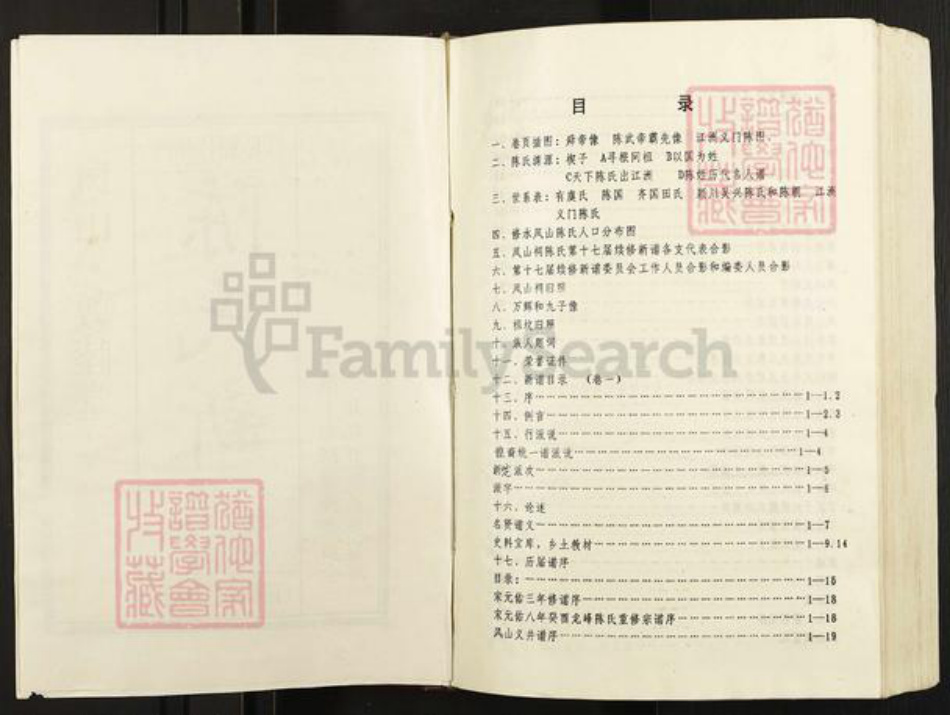 目 录
一、卷页插图：舜帝像 陈武帝霸先像 江洲义门陈图、
二、陈氏渊源：楔子 A寻根问祖 B以国为姓
C天下陈氏出江洲 D陈姓历代名人谱
三、世系表：有虞氏 陈国 齐国田氏 颍川吴兴陈氏和陈朝 江洲
义门陈氏
四、修水凤山陈氏人口分布图
五、凤山祠陈氏第十七届续修新谱各支代表合影
六、第十七届续修新谱委员会工作人员合影和编委人员合影
七、凤山祠旧照
八、万辉和九子像
九、祖坟旧照
十、族人题词
十一、荣誉证件
十二、新谱目录 （卷一）
十三、序……1—1.2
十四、例言……1—2.3
十五、行派说……1—4
统一谱派说……1—4
派次……1—5
派字……1—6
十六、论述
名贤谱义……1—7
史料宝库，乡土教材……1—9.14
十七、历届谱序
目录：……1—15
宋元佑三年修谱序……1—18
宋元佑八年癸酉龙峰陈氏重修宗谱序……1—18
凤山义井谱序……1—19
FamilySearch